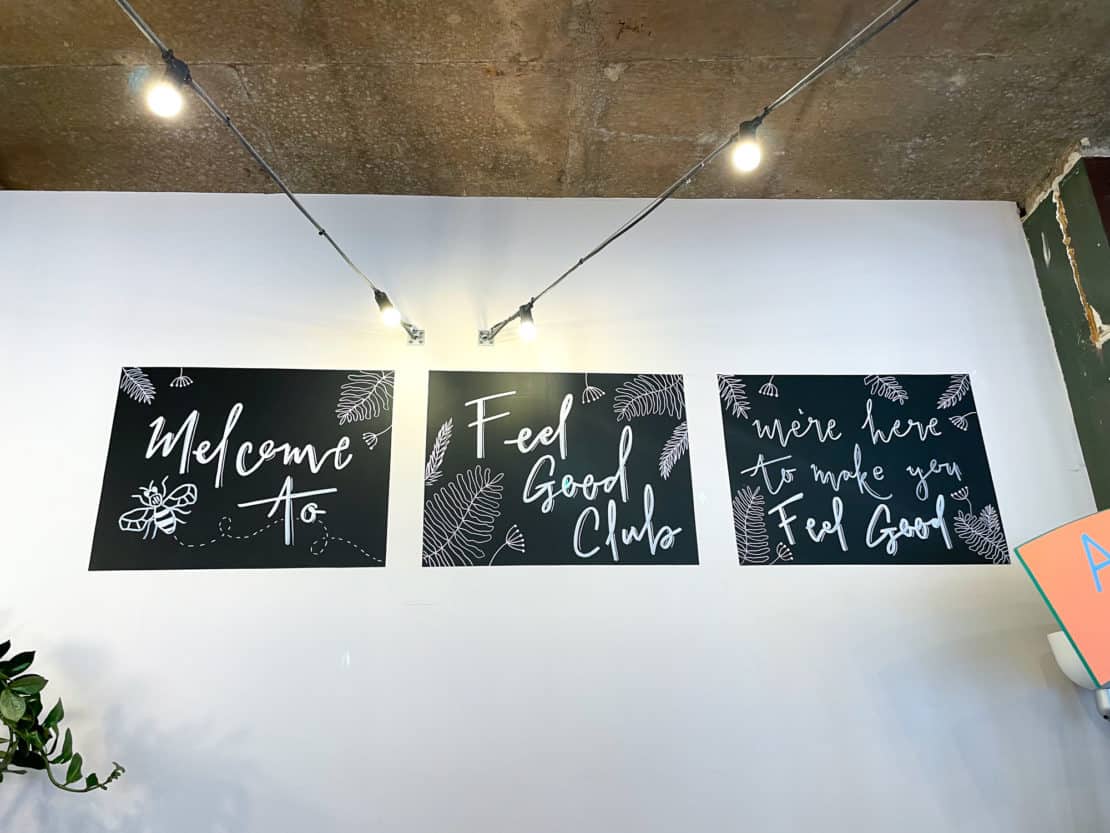 Welcome
To
Feel
Good
Club
we're here
to make you
Feel Good
A